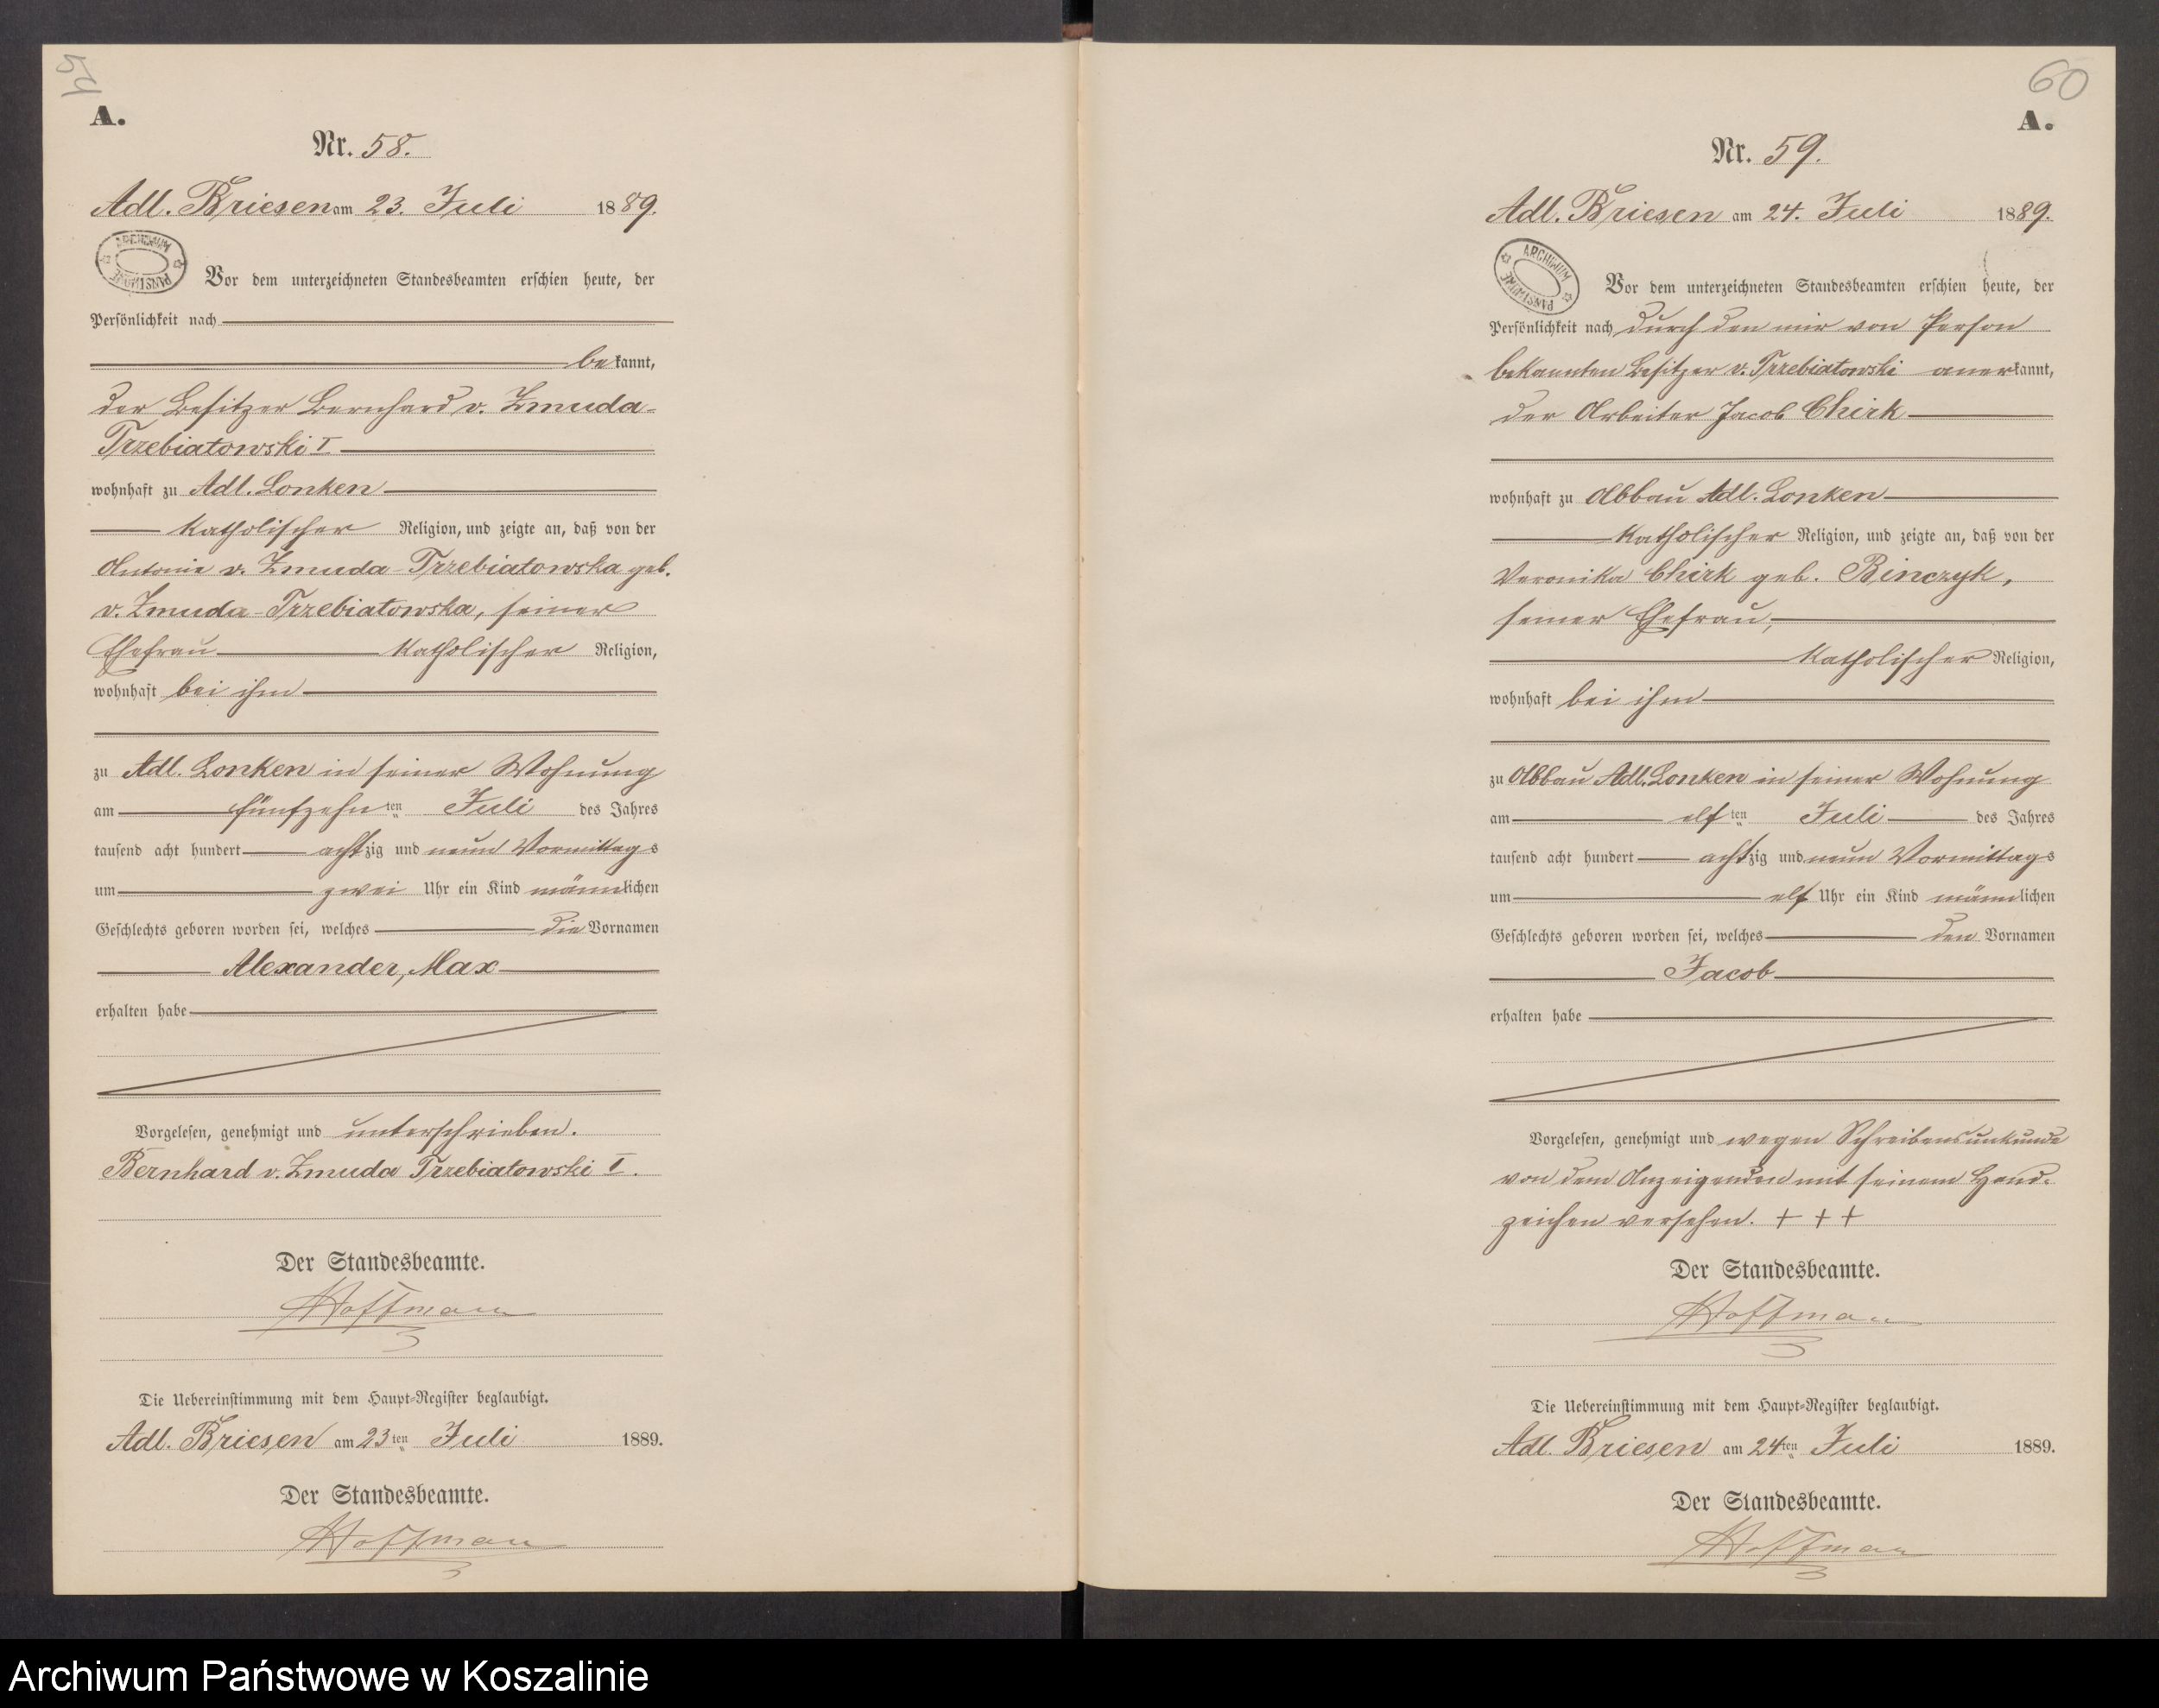 54
A.
Nr. 58.
Adl. Briesen am 23. Juli 1889.
ARCHIWUM PAŃSTWOWE
Vor dem unterzeichneten Standesbeamten erschien heute, der
Persönlichkeit nach
bekannt,
der Besitzer Bernhard v. Zmuda-
Trzebiatowski I
wohnhaft zu Adl. Lonken
katholischer Religion, und zeigte an, daß von der
Antonie v. Zmuda-Trzebiatowska geb.
v. Zmuda-Trzebiatowska, seiner
Ehefrau katholischer Religion,
wohnhaft bei ihm
zu Adl. Lonken in seiner Wohnung
am fünfzehnten Juli des Jahres
tausend acht hundert achtzig und neun Vormittags
um zwei Uhr ein Kind männlichen
Geschlechts geboren worden sei, welches die Vornamen
Alexander, Max
erhalten habe
Vorgelesen, genehmigt und unterschrieben.
Bernhard v. Zmuda Trzebiatowski I.
Der Standesbeamte.
Hoffmann
Die Uebereinstimmung mit dem Haupt-Register beglaubigt.
Adl. Briesen am 23ten Juli 1889.
Der Standesbeamte.
Hoffmann
60
A.
Nr. 59.
Adl. Briesen am 24. Juli 1889.
ARCHIWUM PAŃSTWOWE
Vor dem unterzeichneten Standesbeamten erschien heute, der
Persönlichkeit nach durch den mir von Person
bekannten Besitzer v. Trzebiatowski anerkannt,
der Arbeiter Jacob Chirk
wohnhaft zu Abbau Adl. Lonken
katholischer Religion, und zeigte an, daß von der
Veronika Chirk geb. Binczyk,
seiner Ehefrau,
katholischer Religion,
wohnhaft bei ihm
zu Abbau Adl. Lonken in seiner Wohnung
am elften Juli des Jahres
tausend acht hundert achtzig und neun Vormittags
um elf Uhr ein Kind männlichen
Geschlechts geboren worden sei, welches den Vornamen
Jacob
erhalten habe
Vorgelesen, genehmigt und wegen Schreibensunkunde
von dem Anzeigenden mit seinem Hand-
zeichen versehen. + + +
Der Standesbeamte.
Hoffmann
Die Uebereinstimmung mit dem Haupt-Register beglaubigt.
Adl. Briesen am 24ten Juli 1889.
Der Standesbeamte.
Hoffmann
Archiwum Państwowe w Koszalinie